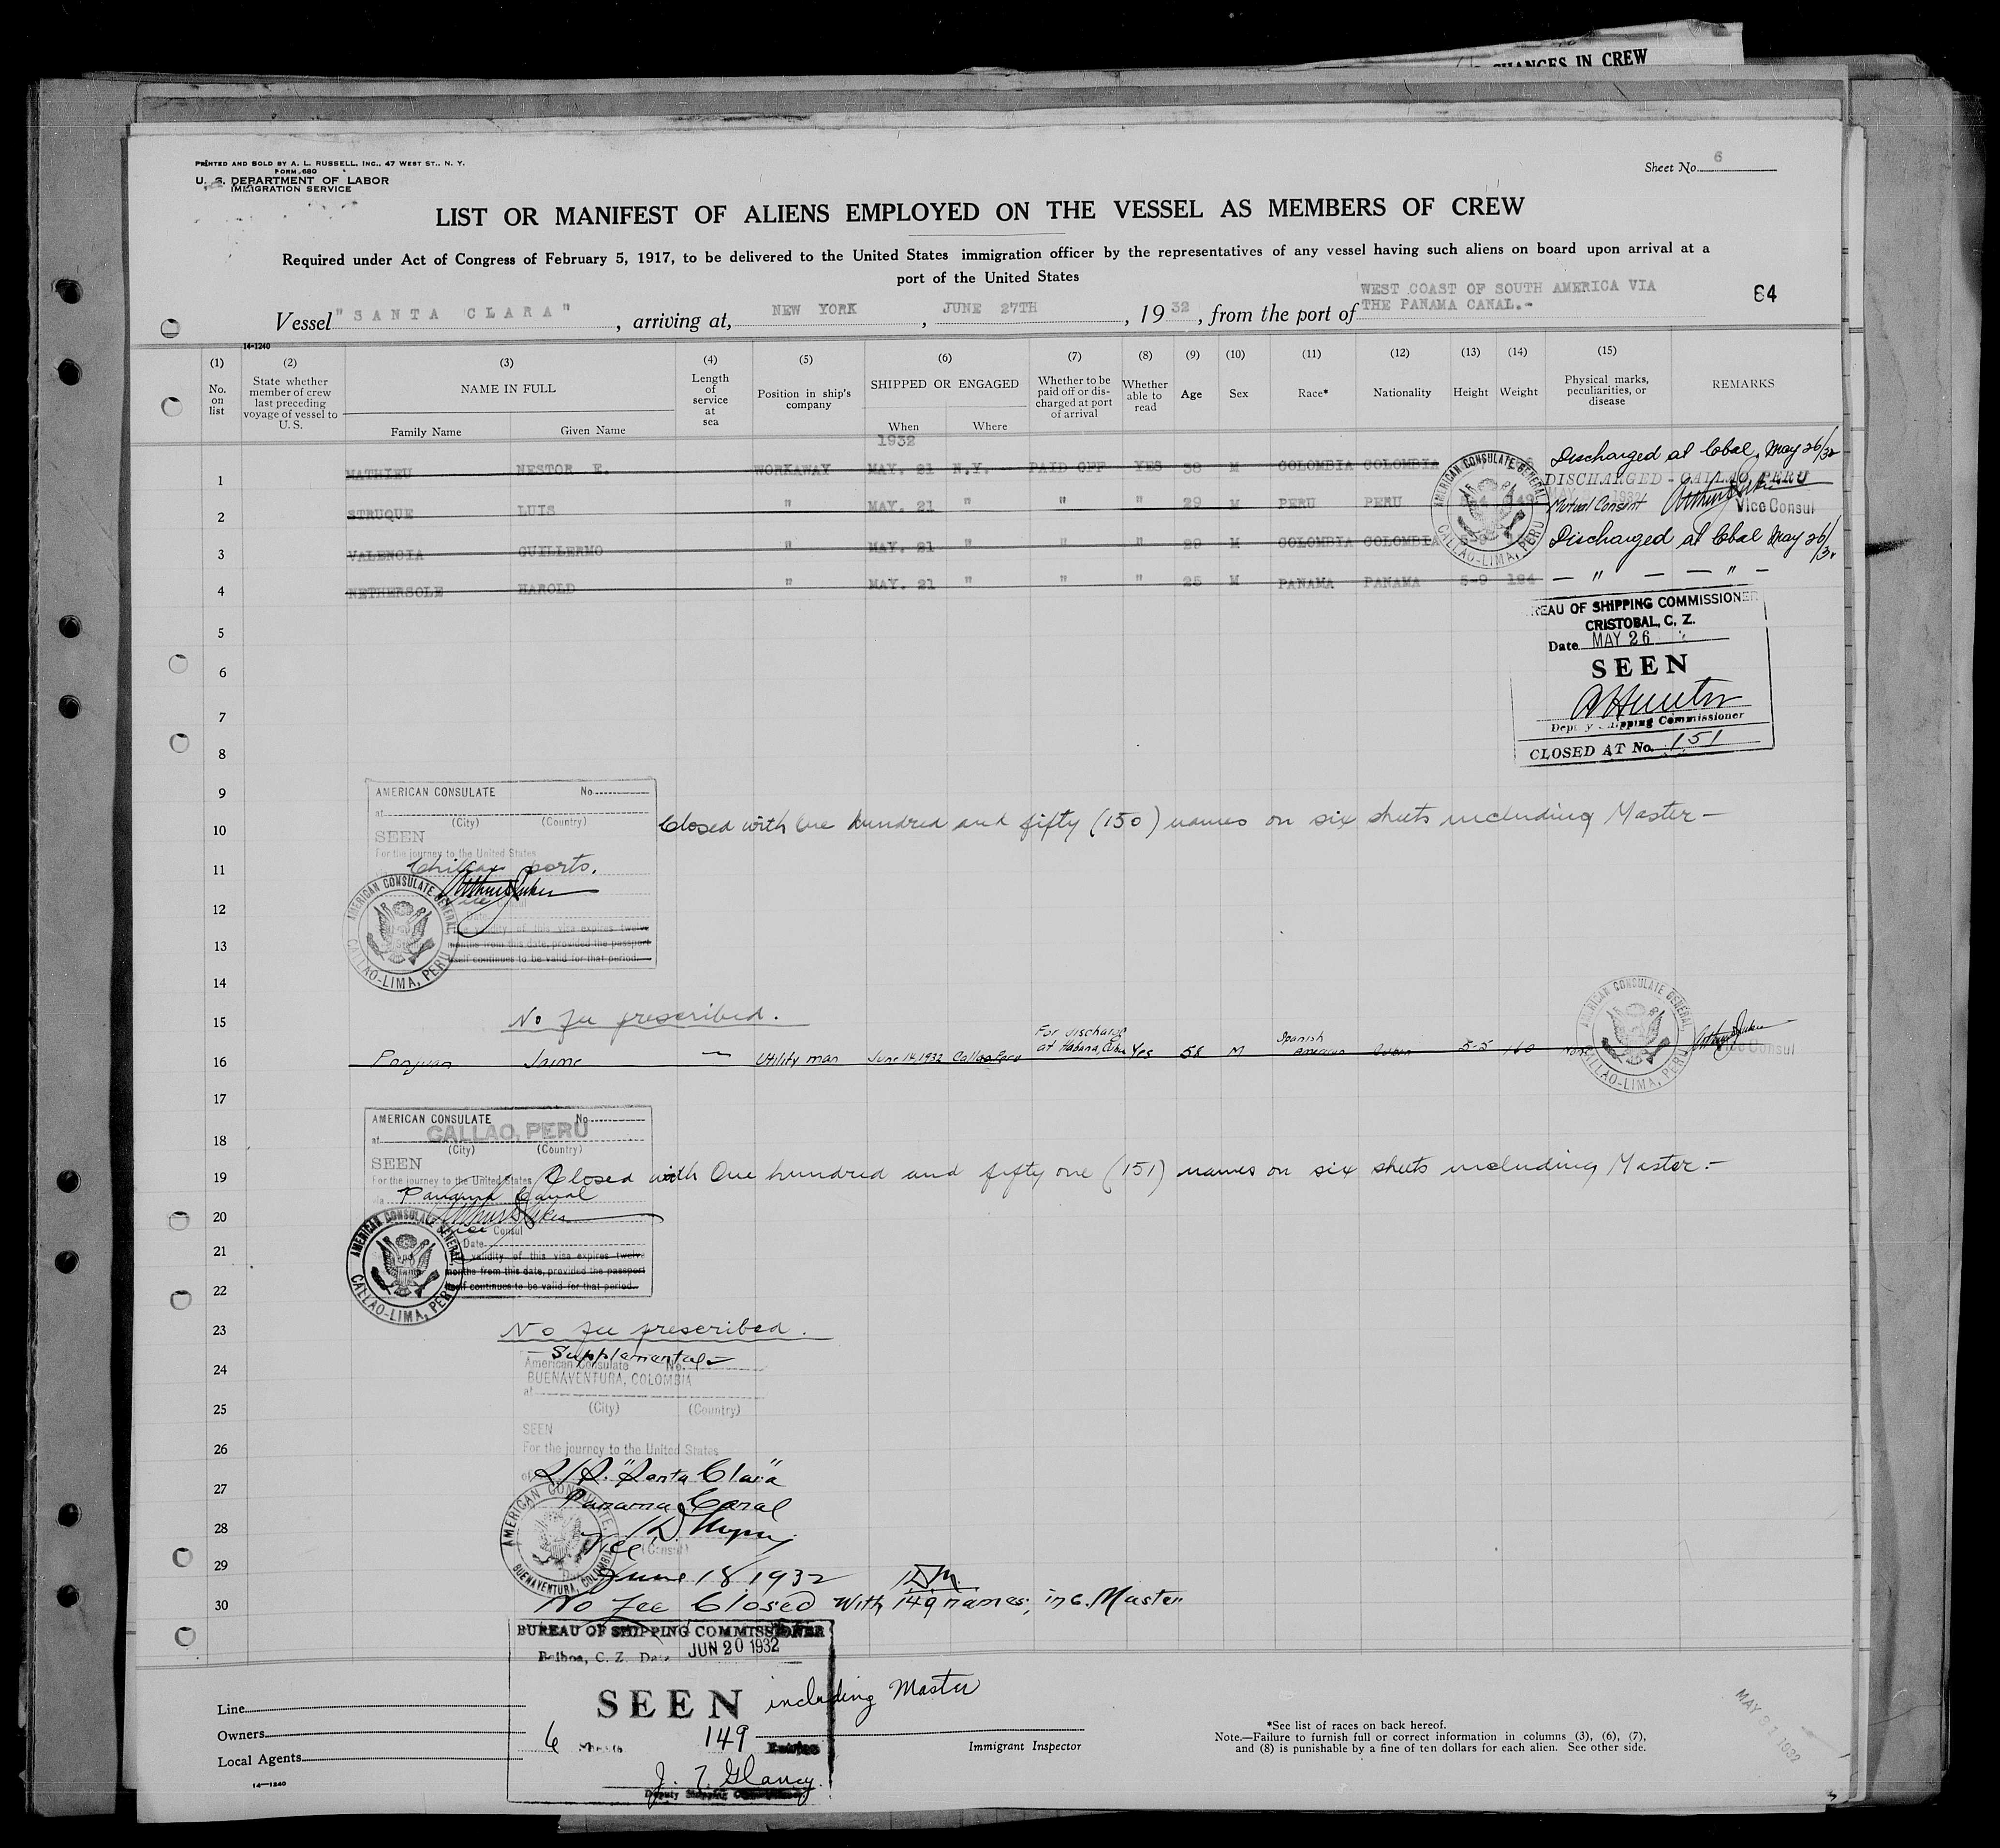 CHANGES IN CREW
PRINTED AND SOLD BY A. L. RUSSELL, INC., 47 WEST ST., N. Y.
FORM 680
U. S. DEPARTMENT OF LABOR
IMMIGRATION SERVICE
Sheet No. 6
LIST OR MANIFEST OF ALIENS EMPLOYED ON THE VESSEL AS MEMBERS OF CREW
Required under Act of Congress of February 5, 1917, to be delivered to the United States immigration officer by the representatives of any vessel having such aliens on board upon arrival at a
port of the United States
Vessel "SANTA CLARA", arriving at, NEW YORK, JUNE 27TH, 1932, from the port of WEST COAST OF SOUTH AMERICA VIA
THE PANAMA CANAL.-
64
14-1240
(1) (2) (3) (4) (5) (6) (7) (8) (9) (10) (11) (12) (13) (14) (15)
No. on list
State whether member of crew last preceding voyage of vessel to U. S.
NAME IN FULL
Family Name Given Name
Length of service at sea
Position in ship's company
SHIPPED OR ENGAGED
When Where
Whether to be paid off or discharged at port of arrival
Whether able to read
Age
Sex
Race*
Nationality
Height
Weight
Physical marks, peculiarities, or disease
REMARKS
1932
1 MATHIEU NESTOR E. WORKAWAY MAY. 21 N.Y. PAID OFF YES 38 M COLOMBIA COLOMBIA Discharged at Cbal, May 26/32
DISCHARGED - CALLAO, PERU
2 STRUQUE LUIS " MAY. 21 " " " 29 M PERU PERU 149 Mutual Consent
Vice Consul
3 VALENCIA GUILLERMO " MAY. 21 " " " 29 M COLOMBIA COLOMBIA Discharged at Cbal May 26/32
4 NETHERSOLE HAROLD " MAY. 21 " " " 25 M PANAMA PANAMA 5-9 194 — " — — " —
AMERICAN CONSULATE GENERAL, CALLAO-LIMA, PERU
5
BUREAU OF SHIPPING COMMISSIONER
CRISTOBAL, C. Z.
Date MAY 26
6
SEEN
7
Deputy Shipping Commissioner
8
CLOSED AT No. 151
9
AMERICAN CONSULATE No
at
(City) (Country)
10 Closed with One hundred and fifty (150) names on six sheets including Master -
SEEN
For the journey to the United States
11
Chilean ports.
12
AMERICAN CONSULATE GENERAL, CALLAO-LIMA, PERU
Date
validity of this visa expires twelve
13
months from this date, provided the passport
itself continues to be valid for that period.
14
15 No fee prescribed.
16 Jaime — Utility man June 14, 1932 Callao Peru For discharge at Habana, Cuba Yes 58 M Spanish American Cuban 5-5 160 None
AMERICAN CONSULATE GENERAL, CALLAO-LIMA, PERU
Vice Consul
17
AMERICAN CONSULATE No
18
at CALLAO, PERU
(City) (Country)
SEEN
19 Closed with One hundred and fifty one (151) names on six sheets including Master.-
For the journey to the United States
via Panama Canal
20
Vice Consul
AMERICAN CONSULATE GENERAL, CALLAO-LIMA, PERU
Date
21
validity of this visa expires twelve
months from this date, provided the passport
22
itself continues to be valid for that period.
23 No fee prescribed.
- Supplemental -
24
American Consulate No.
BUENAVENTURA, COLOMBIA
at
25
(City) (Country)
26
SEEN
For the journey to the United States
27
of S/S. "Santa Clara"
Panama Canal
28
Vice (Consul)
AMERICAN CONSULATE, BUENAVENTURA, COLOMBIA
29
June 18 1932
30
No fee Closed with 149 names, inc. Master
BUREAU OF SHIPPING COMMISSIONER
Balboa, C. Z. Date JUN 20 1932
SEEN including Master
6 Sheets 149 Entries
J. T. Glancy
Deputy Shipping Commissioner
Line
Owners
Local Agents
14—1240
Immigrant Inspector
*See list of races on back hereof.
Note.—Failure to furnish full or correct information in columns (3), (6), (7),
and (8) is punishable by a fine of ten dollars for each alien. See other side.
MAY 31 1932